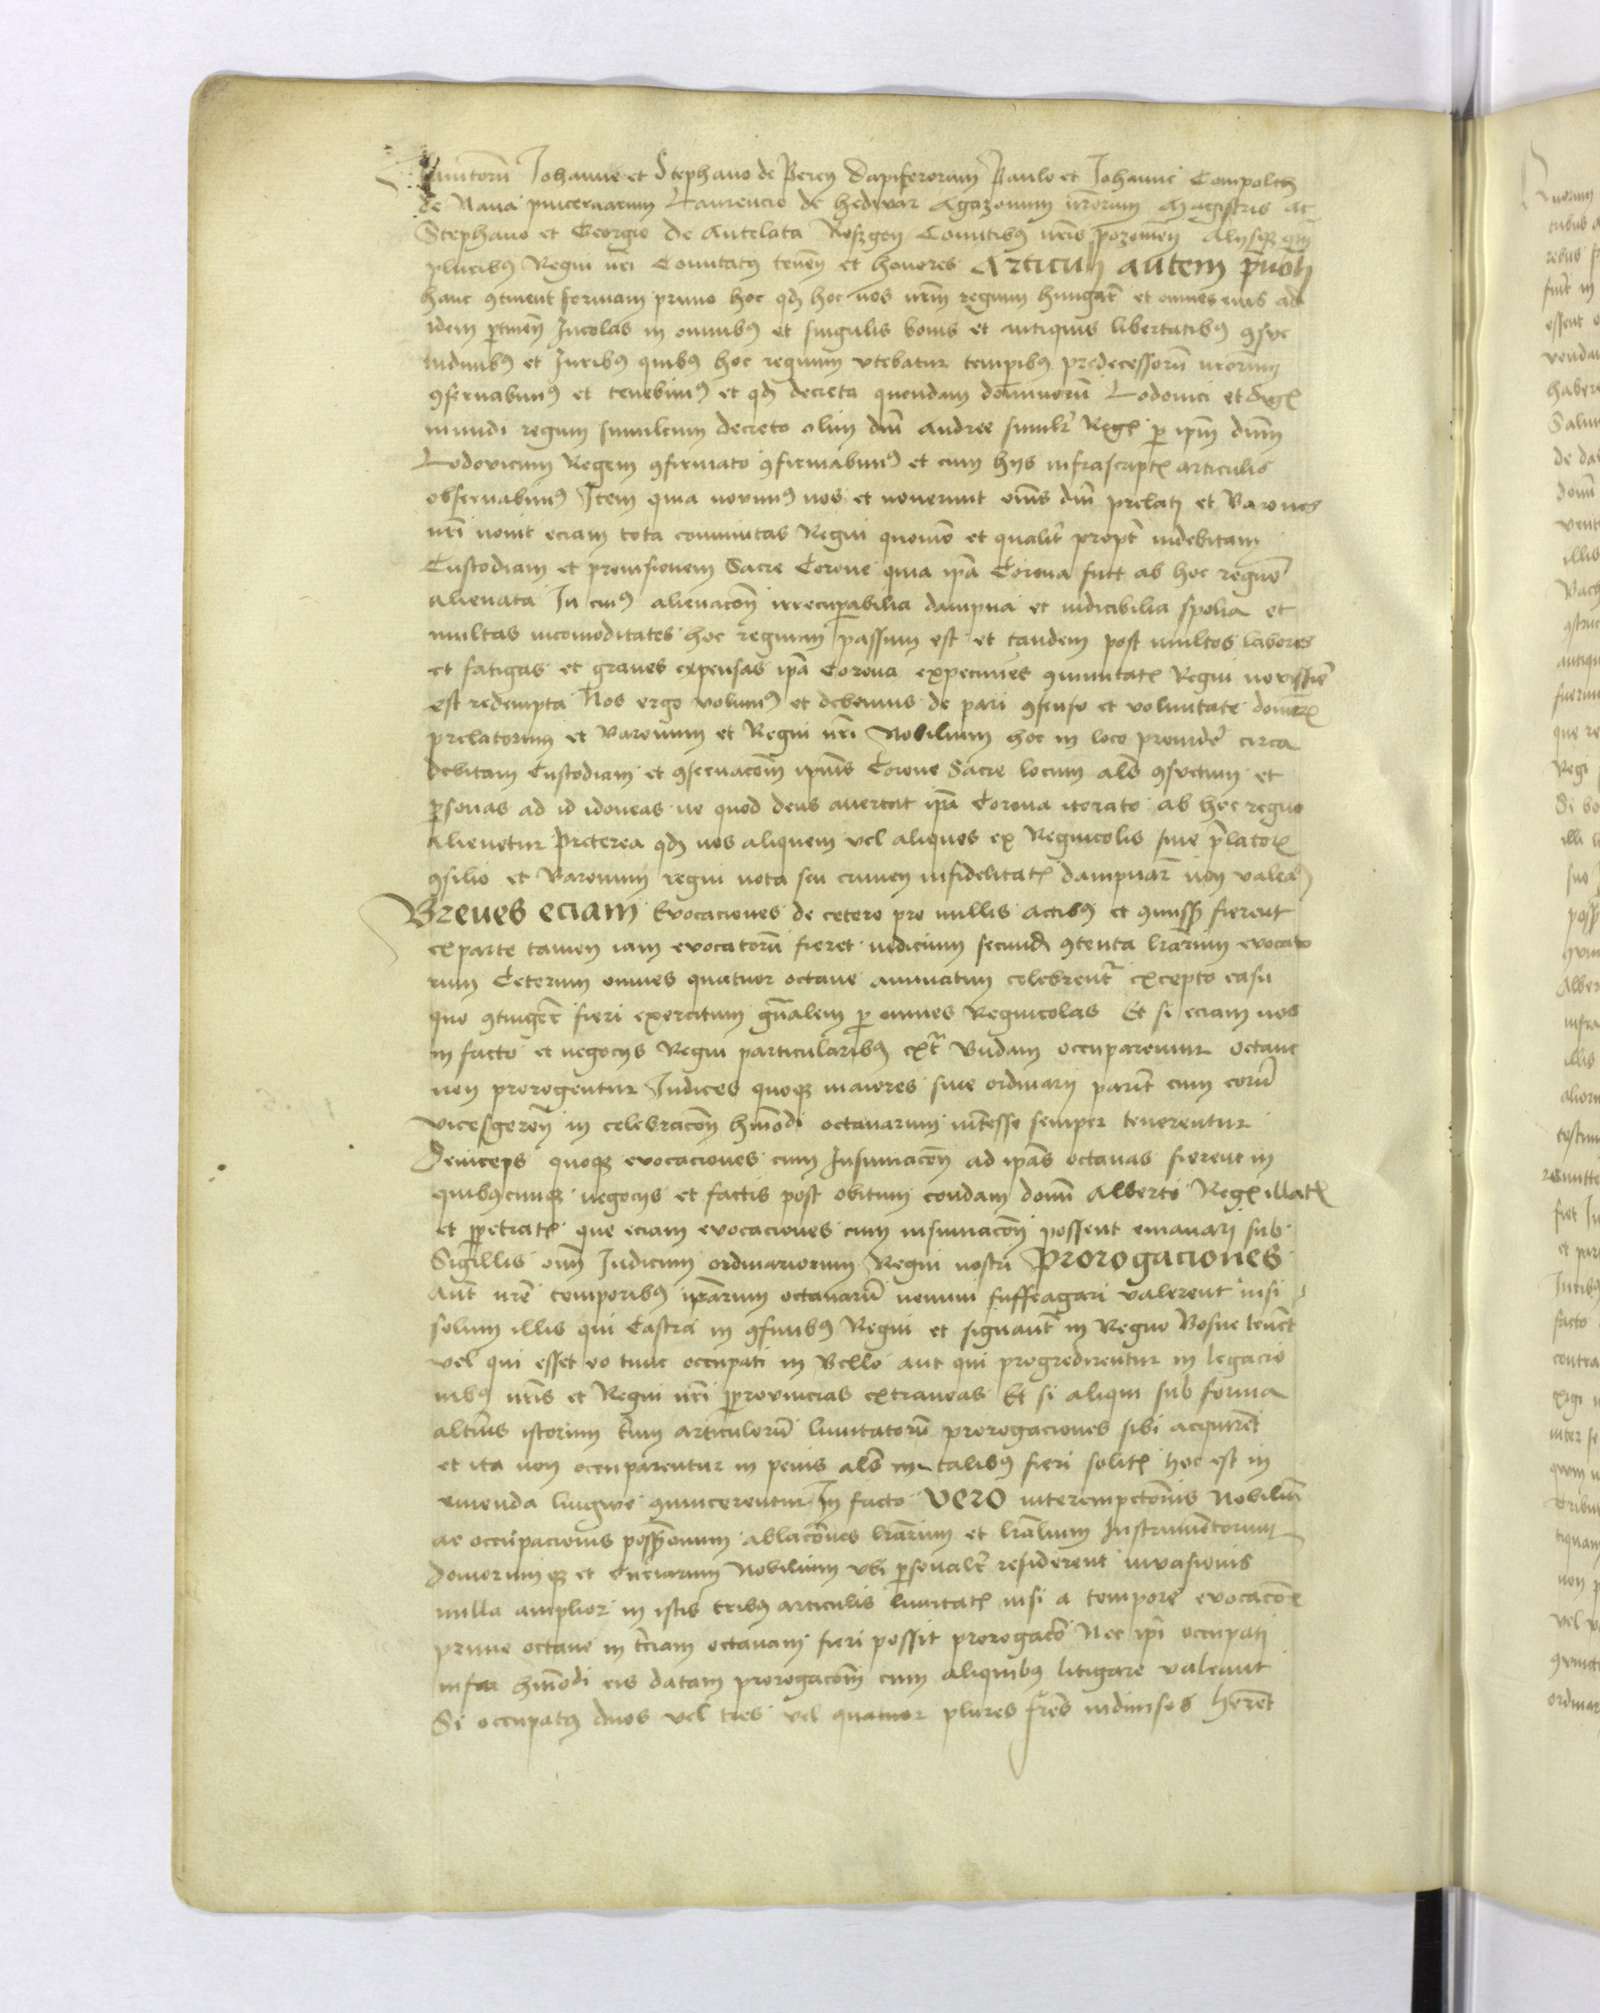 Ianitorū Iohanne et Stephano de Peren Dapiferorum Paulo et Iohanne Compolth
de Nana pincernarum Laurencio de hedrvar Agazonum nr̄orum Magistris ac
Stephano et Georgio de Antelata Rosgon Comitibꝰ nr̄is pozonien̄ Alysqꝫ qm̄
pluribꝰ Regni nr̄i Comitatꝰ tenen̄ et honores Articuli autem p̄noti
hanc ꝯtinent formam primo hoc qđ hoc nos nrm̄ regnum hungar̄ et omnes eius ad
idem ptinen̄ Incolas in omnibꝰ et singulis bonis et antiquis libertatibꝰ ꝯsue
tudinibꝰ et Iuribꝰ quibꝰ hoc regnum vtebatur tempibꝰ predecessorū nr̄orum
ꝯseruabimꝰ et tenebimꝰ et qđ decreta quondam dominorū Lodouici et Sigꝭ
mundi regum simulcum decreto olim dn̄i andree similr̄ Regꝭ p ipm̄ dnm̄
Lodovicum Regem ꝯfirmato ꝯfirmabimꝰ et cum hys infrascriptꝭ articulis
obseruabimꝰ Item quia nouimꝰ nos et nouerunt om̄s dn̄i prelati et Barones
nr̄i nouit eciam tota com̄nitas Regni quomō et qualit̄ propt̄ indebitam
Custodiam et prouisionem Sacre Corone quia ipa Corona fuit ab hoc regno
alienata In cuiꝰ alienacōn irrecupabilia dampna et indicibilia spolia et
multas incomoditates hoc regnum passum est et tandem post multos labores
et fatigas et graues expensas ipā Corona expecunes ꝯmunitatꝭ Regni nouissīe
est redempta Nos ergo volumꝰ et debemus de pari ꝯsensu et voluntate dominorꝭ
prelatorum et Baronum et Regni nr̄i Nobilium hoc in loco prouider̄ circa
debitam Custodiam et ꝯseruacōm ipius Corone Sacre locum als̄ ꝯsuetum et
psonas ad id idoneas ne quod deus auertat ipā Corona iterato ab hoc regno
alienetur Preterea qđ nos aliquem vel aliquos ex Regnicolis sine p̄latorꝭ
ꝯsilio et Baronum regni nota seu crimen infidelitatꝭ dampnar̄ non valeā
Breues eciam Evocaciones de cetero pro nullis actibꝰ et ꝯmissis fierent
exparte tamen iam evocatorū fieret iudicium secund̄ ꝯtenta lr̄arum evocato
rum Ceterum omnes quatuor octaue annuatim celebrent̄ excepto casu
quo ꝯtinger̄ fieri exercitum gn̄alem p omnes Regnicolas Et si eciam nos
in facto et negocys Regni particularibꝰ ext̄ Budam occuparemur octaue
non prorogentur Iudices quoqꝫ maiores siue ordinarij parit̄ cum eorū
vicesgeren̄ in celebracōn hm̄odi octauarum int̄esse semper tenerentur
Deinceps quoqꝫ evocaciones cum Insinuacōn ad ipas octauas fierent in
quibꝰcunqꝫ negocys et factis post obitum condam domī Alberti Regꝭ illatꝭ
et ppetratꝭ que eciam evocaciones cum insinuacōn possent emanari sub
Sigillis oim̄ Iudicum ordinariorum Regni nostri Prorogaciones
Aut̄ nr̄e temporibꝰ ipārum octauarū nemini suffragari valerent nisi
solum illis qui Castra in ꝯfinibꝰ Regni et signant̄ in Regno Bosne tenēt
vel qui esset eo tunc occupati in Bello aut qui progredirentur in legacio
nibꝰ nr̄is et Regni nr̄i p prouincias extraneas Et si aliqui sub forma
altius istorum trium articulorū limitatorū prorogaciones sibi acquirēt
et ita non occuparentur in penis als̄ in talibꝰ fieri solitꝭ hoc est in
emenda lingwe ꝯuincerentur In facto vero interempctōnis Nobiliū
ac occupacionis poss̄ionum ablacōnes lr̄arum et lr̄alium Instrumentorum
domorumqꝫ et Curiarum Nobilium vbi psonalr̄ residerent inuasionis
nulla amplior in istis tribꝰ articulis limitatꝭ nisi a tempore evocacōnꝭ
prime octaue in t̄ciam octauam fieri possit prorogacō Nec ipī occupati
infra hm̄odi eis datam prorogacōm cum aliquibꝰ litigare valeant
Si occupatꝰ duos vel tres vel quatuor plures fr̄es indiuisos her̄et